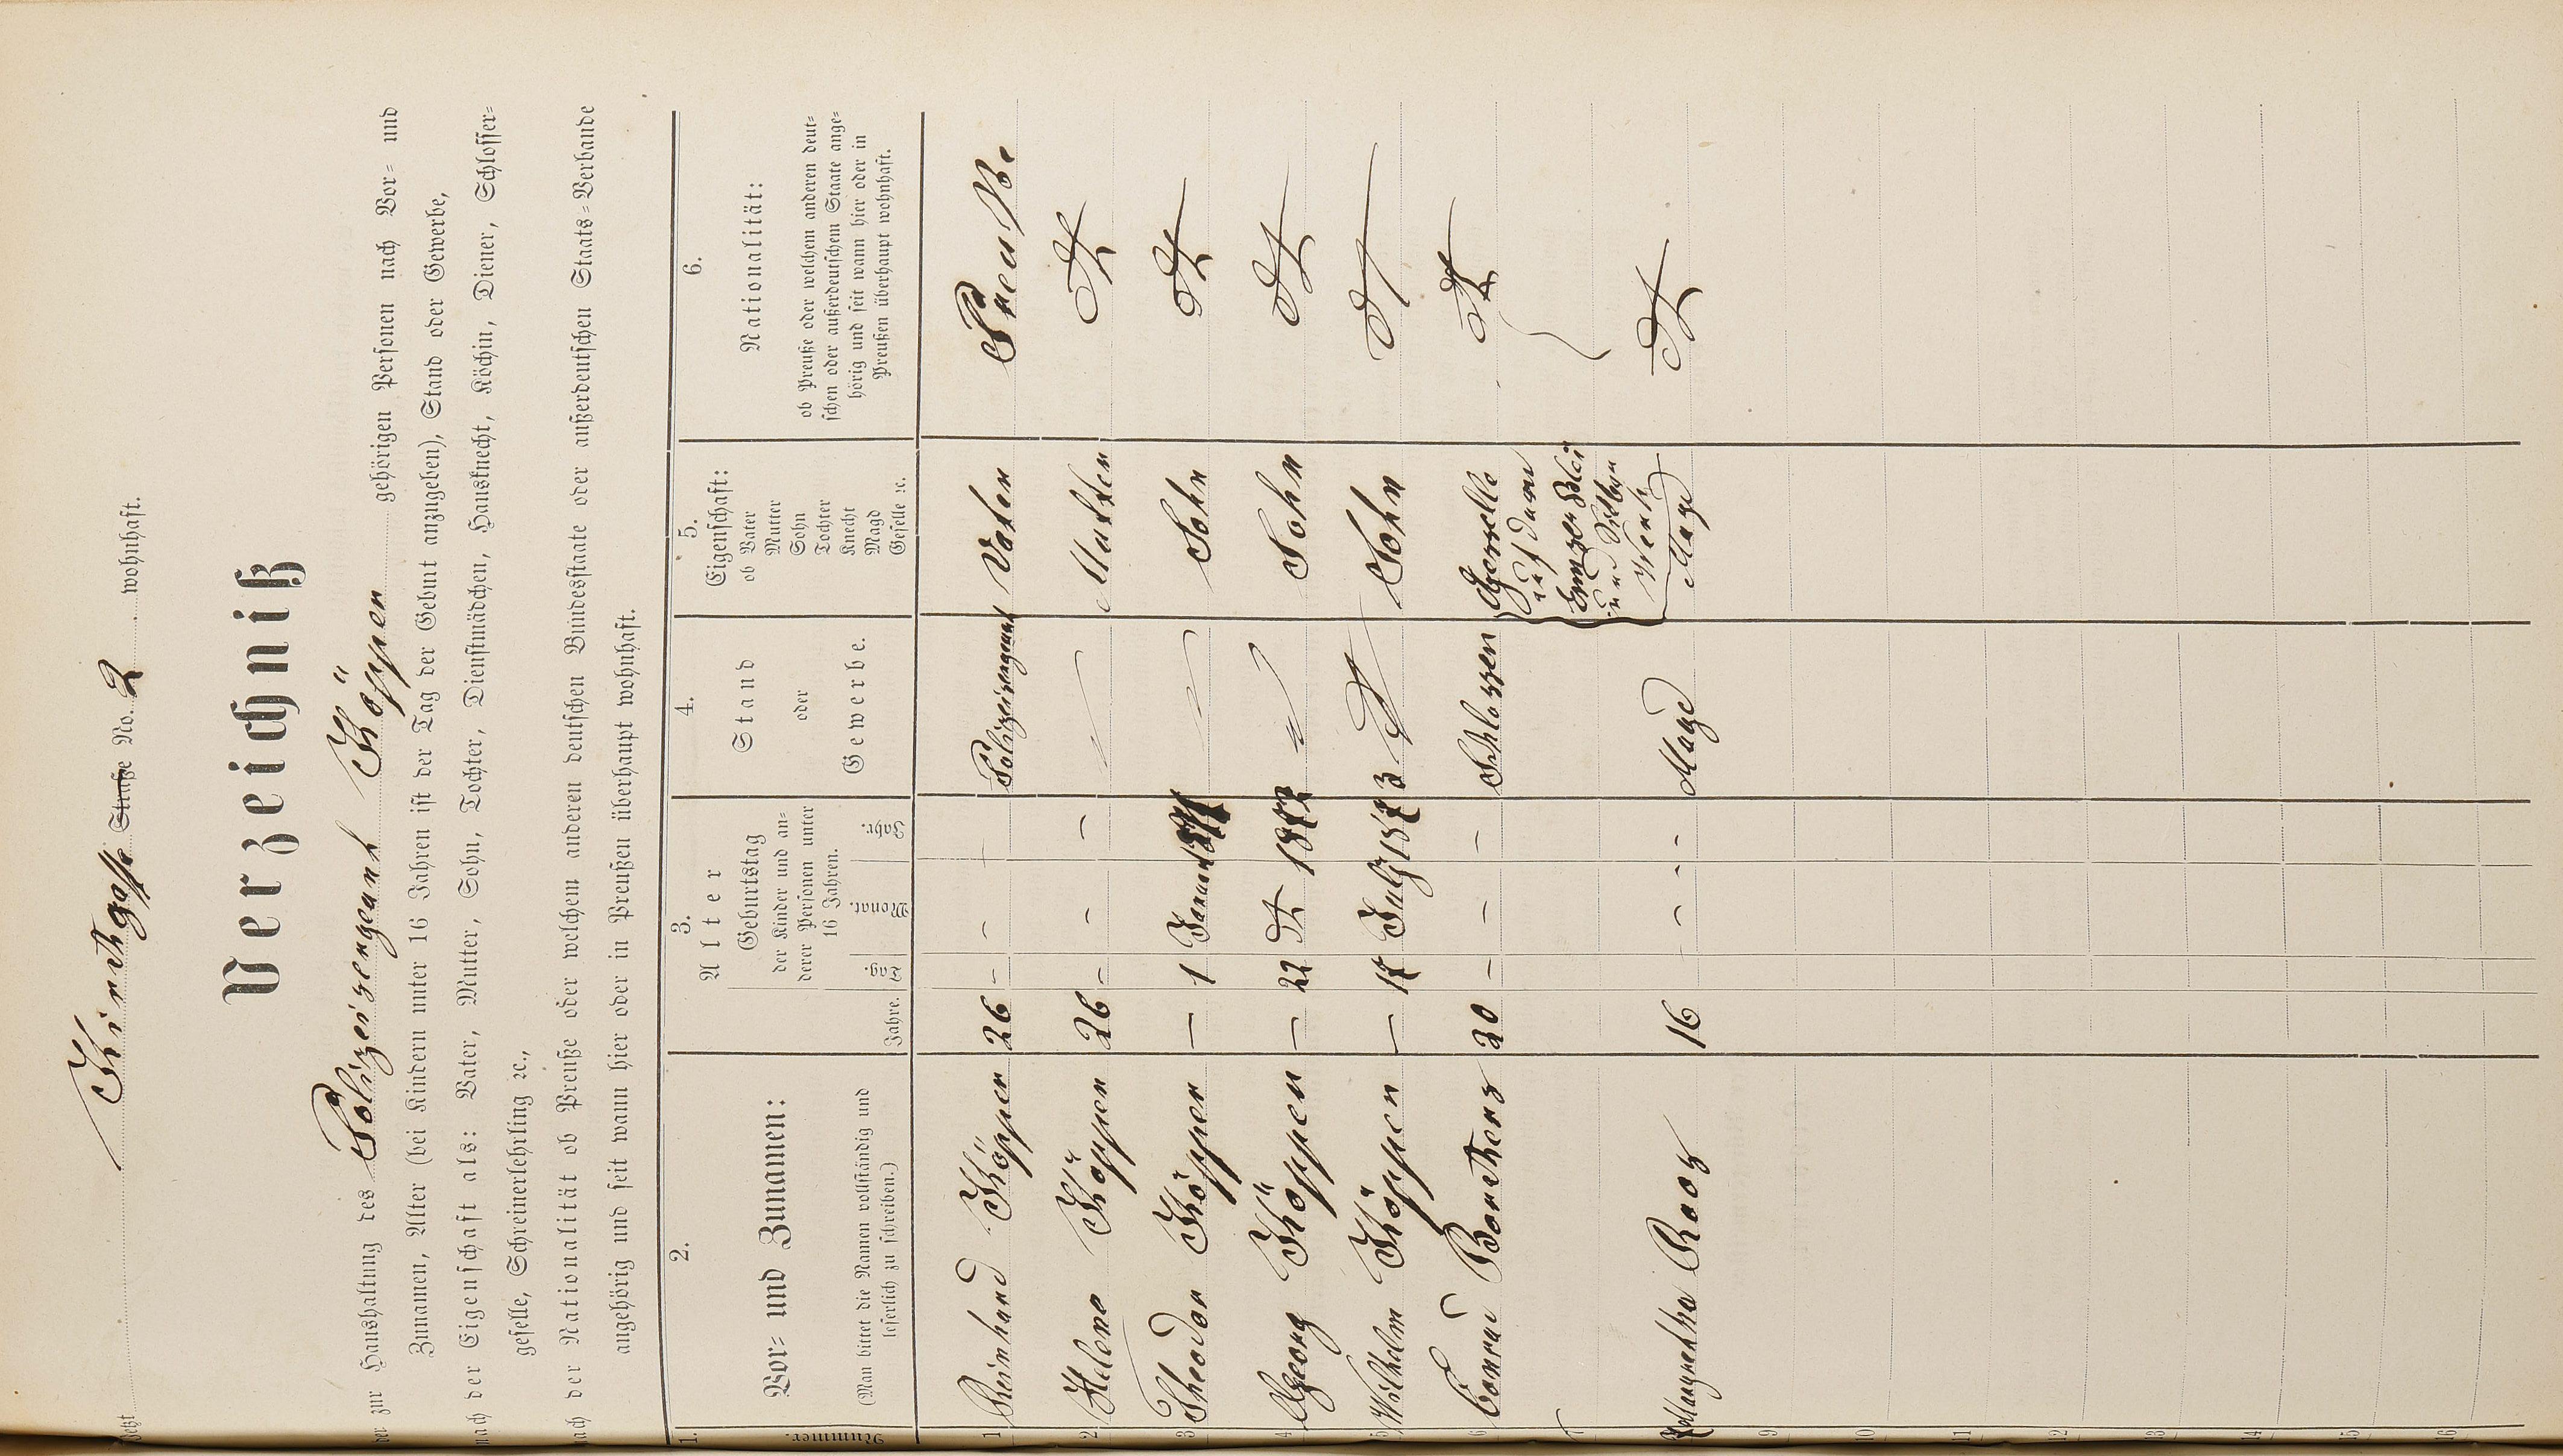 Jetzt Kirchgasse Straße No. 2 wohnhaft.
Verzeichniß
der zur Haushaltung des Polizeisergeant Köppen gehörigen Personen nach Vor- und
Zunamen, Alter (bei Kindern unter 16 Jahren ist der Tag der Geburt anzugeben), Stand oder Gewerbe,
nach der Eigenschaft als: Vater, Mutter, Sohn, Tochter, Dienstmädchen, Hausknecht, Köchin, Diener, Schlosser-
geselle, Schreinerlehrling ꝛc.,
nach der Nationalität ob Preuße oder welchem anderen deutschen Bundesstaate oder außerdeutschen Staats-Verbande
angehörig und seit wann hier oder in Preußen überhaupt wohnhaft.
1. 2. 3. 4. 5. 6.
Nummer.
Vor- und Zunamen:
(Man bittet die Namen vollständig und
leserlich zu schreiben.)
Alter
Jahre.
Geburtstag
der Kinder und an-
derer Personen unter
16 Jahren.
Tag. Monat. Jahr.
Stand
oder
Gewerbe.
Eigenschaft:
ob Vater
Mutter
Sohn
Tochter
Knecht
Magd
Geselle ꝛc.
Nationalität:
ob Preuße oder welchem anderen deut-
schen oder außerdeutschem Staate ange-
hörig und seit wann hier oder in
Preußen überhaupt wohnhaft.
1 Reinhard Köppen 26 – – – Polizeisergeant Vater Preuße
2 Helene Köppen 26 – – – " Mutter dt
3 Theodor Köppen – 1 Januar " Sohn dt
4 Georg Köppen – 22 dt 1872 " Sohn dt
5 Wilhelm Köppen – 17 July 1873 dt Sohn dt
6 Conrad 20 – – – Schlosser Geselle dt
7 auf dem
Emser Blei
und Silber
Werk
Margretha Roos 16 – – – Magd Magd dt
9
10
11
12
13
14
15
16